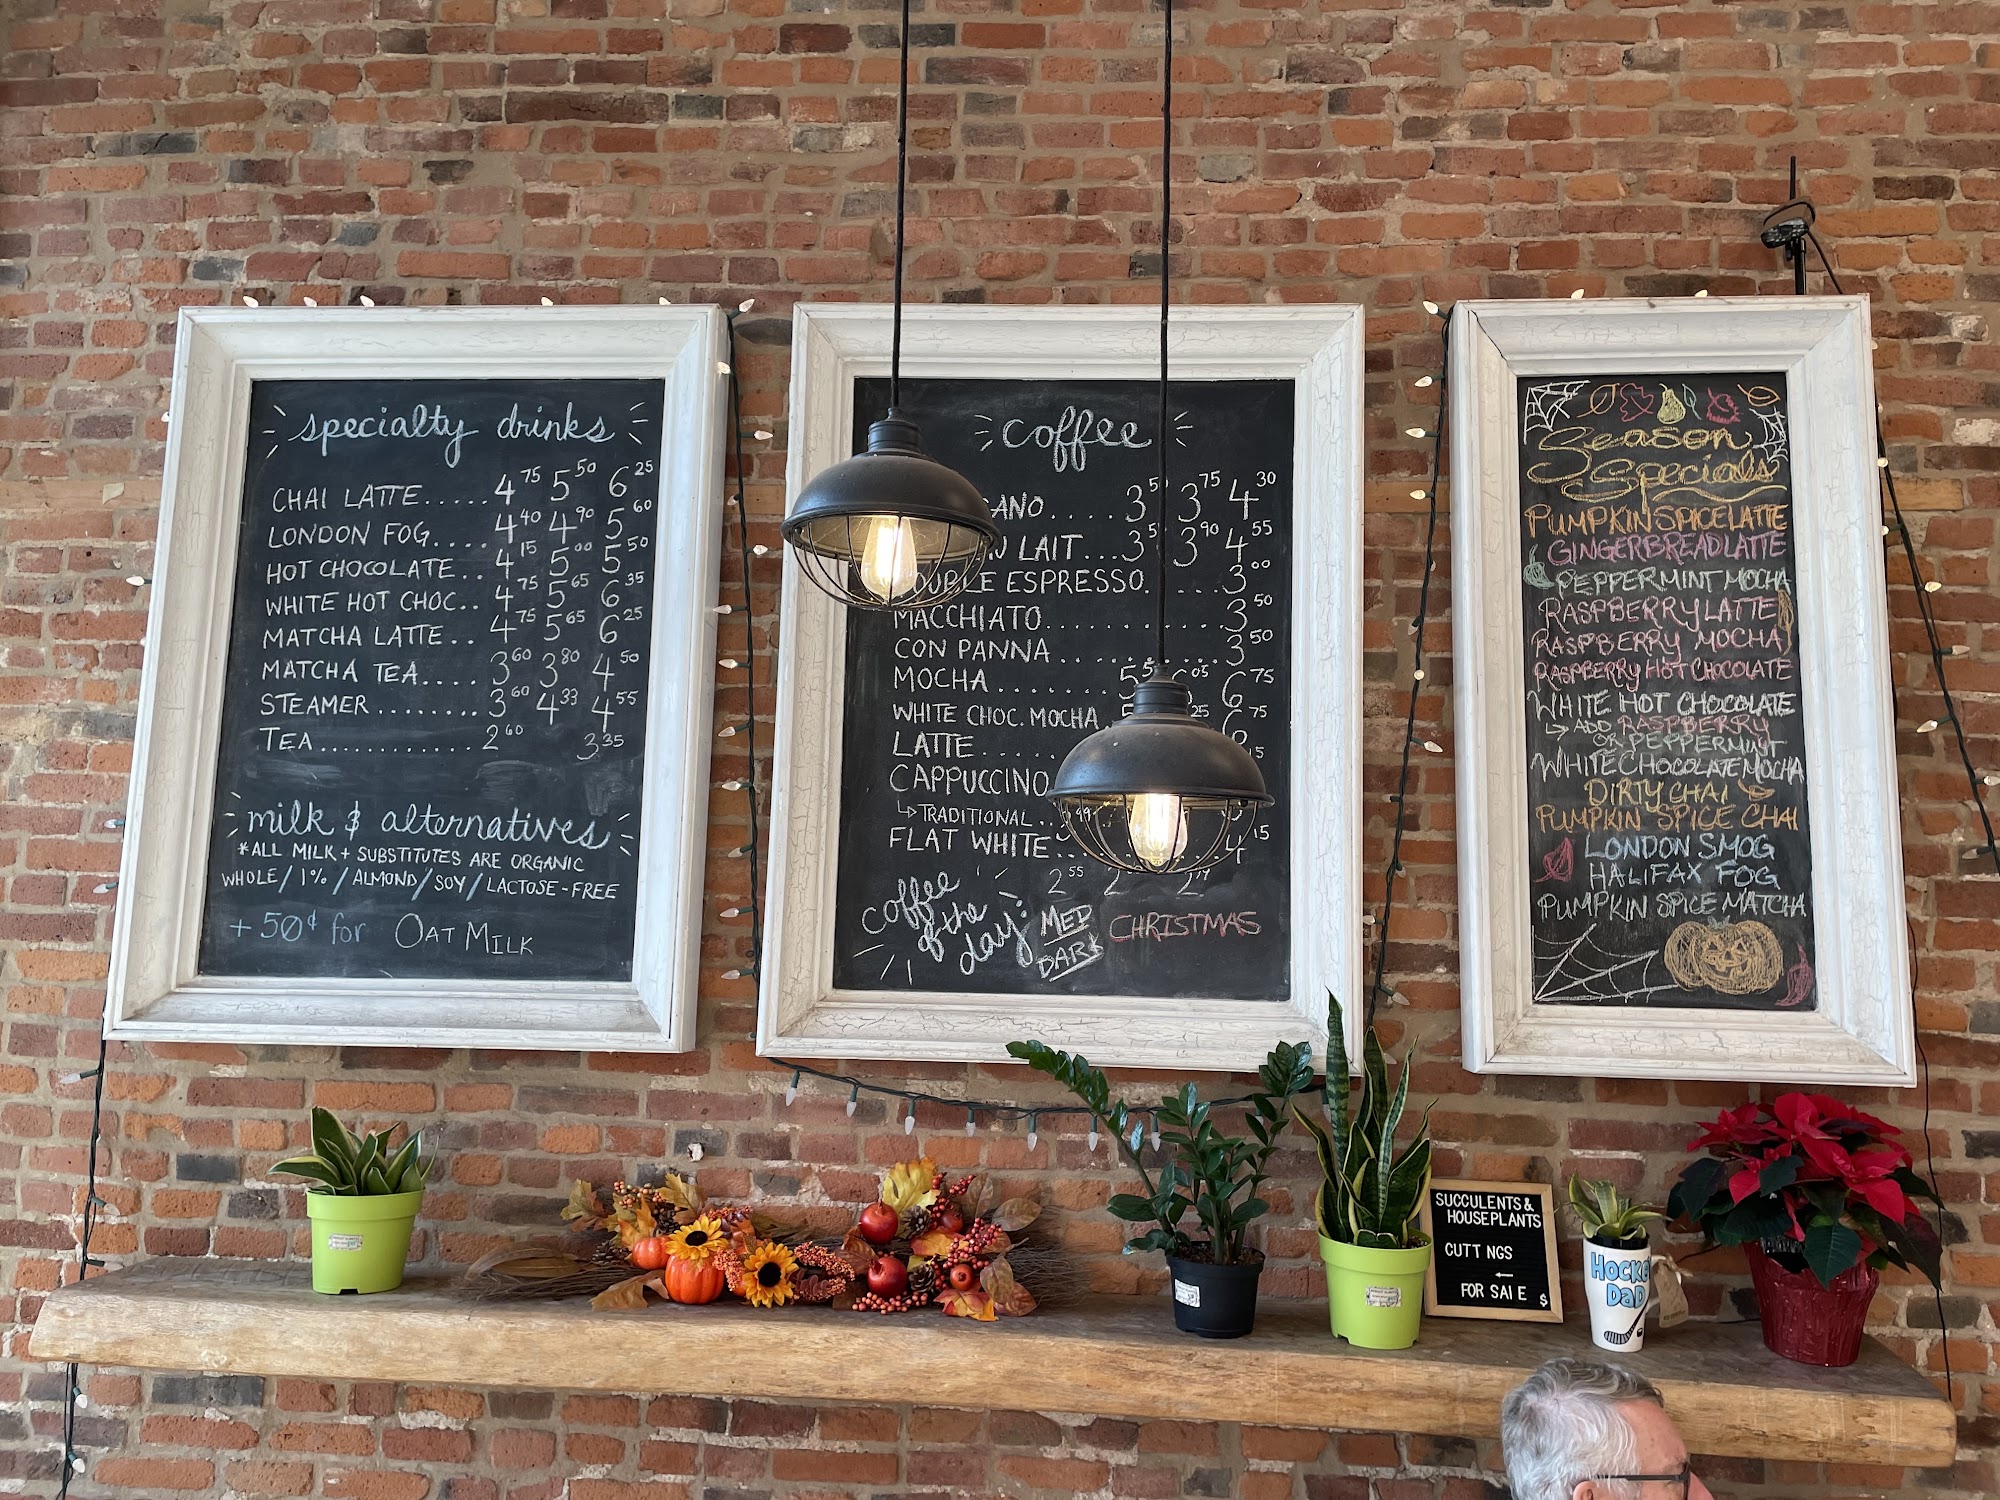 specialty drinks
CHAI LATTE..... 4 75 5 50 6 25
LONDON FOG.... 4 40 4 90 5 60
HOT CHOCOLATE.. 4 15 5 00 5 50
WHITE HOT CHOC.. 4 75 5 65 6 35
MATCHA LATTE... 4 75 5 65 6 25
MATCHA TEA.... 3 60 3 80 4 50
STEAMER........ 3 60 4 33 4 55
TEA............ 2 60 3 35
milk & alternatives
*ALL MILK + SUBSTITUTES ARE ORGANIC
WHOLE / 1% / ALMOND / SOY / LACTOSE-FREE
+ 50¢ for OAT MILK
coffee
ANO.... 3 5 3 75 4 30
LAIT... 3 5 3 90 4 55
ESPRESSO..... 3 00
MACCHIATO............ 3 50
CON PANNA........... 3 50
MOCHA....... 5 5 05 6 75
WHITE CHOC. MOCHA 25 75
LATTE....
CAPPUCCINO
↳ TRADITIONAL.. 49
FLAT WHITE.. 4 15
2 55 2
coffee of the day: MED DARK CHRISTMAS
Season
Specials
PUMPKIN SPICE LATTE
GINGERBREAD LATTE
PEPPERMINT MOCHA
RASPBERRY LATTE
RASPBERRY MOCHA
RASPBERRY HOT CHOCOLATE
WHITE HOT CHOCOLATE
↳ ADD RASPBERRY
OR PEPPERMINT
WHITE CHOCOLATE MOCHA
DIRTY CHAI
PUMPKIN SPICE CHAI
LONDON SMOG
HALIFAX FOG
PUMPKIN SPICE MATCHA
SUCCULENTS &
HOUSEPLANTS
CUTT NGS
←
FOR SALE $
HOCKEY
DAD